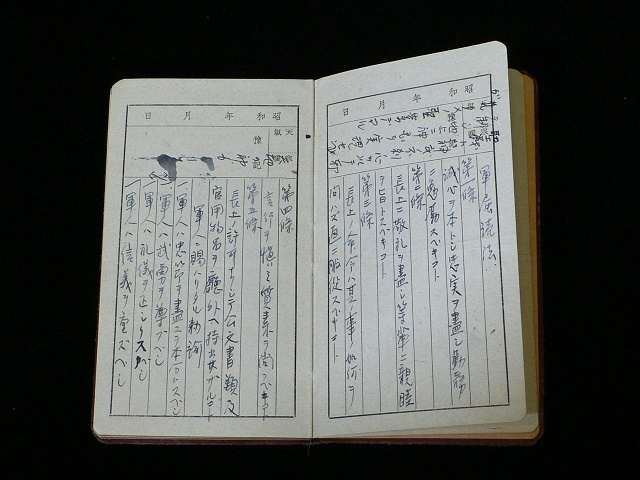 昭和 年 月 日
軍属読法
第一條
誠心ヲ本トシ忠実ヲ盡シ勤務
ニ勉勤スベキコト
第二條
長上ニ敬礼ヲ盡シ等輩ニ親睦
ヲ旨トスベキコト
第三條
長上ノ命令ハ其ノ事ノ如何ヲ
問ハズ直ニ服従スベキコト
昭和 年 月 日
天氣
第四條
言行ヲ慎ミ質素ヲ尚ブベキコト
第五條
長上ノ許可ナクシテ公文書類及
官用物品ヲ廳外ヘ持出サザルコト
軍人ニ賜ハリタル勅諭
一、軍人ハ忠節ヲ盡スヲ本分トスベシ
一、軍人ハ礼儀ヲ正シクスベシ
一、軍人ハ武勇ヲ尊ブベシ
一、軍人ハ信義ヲ重ズベシ